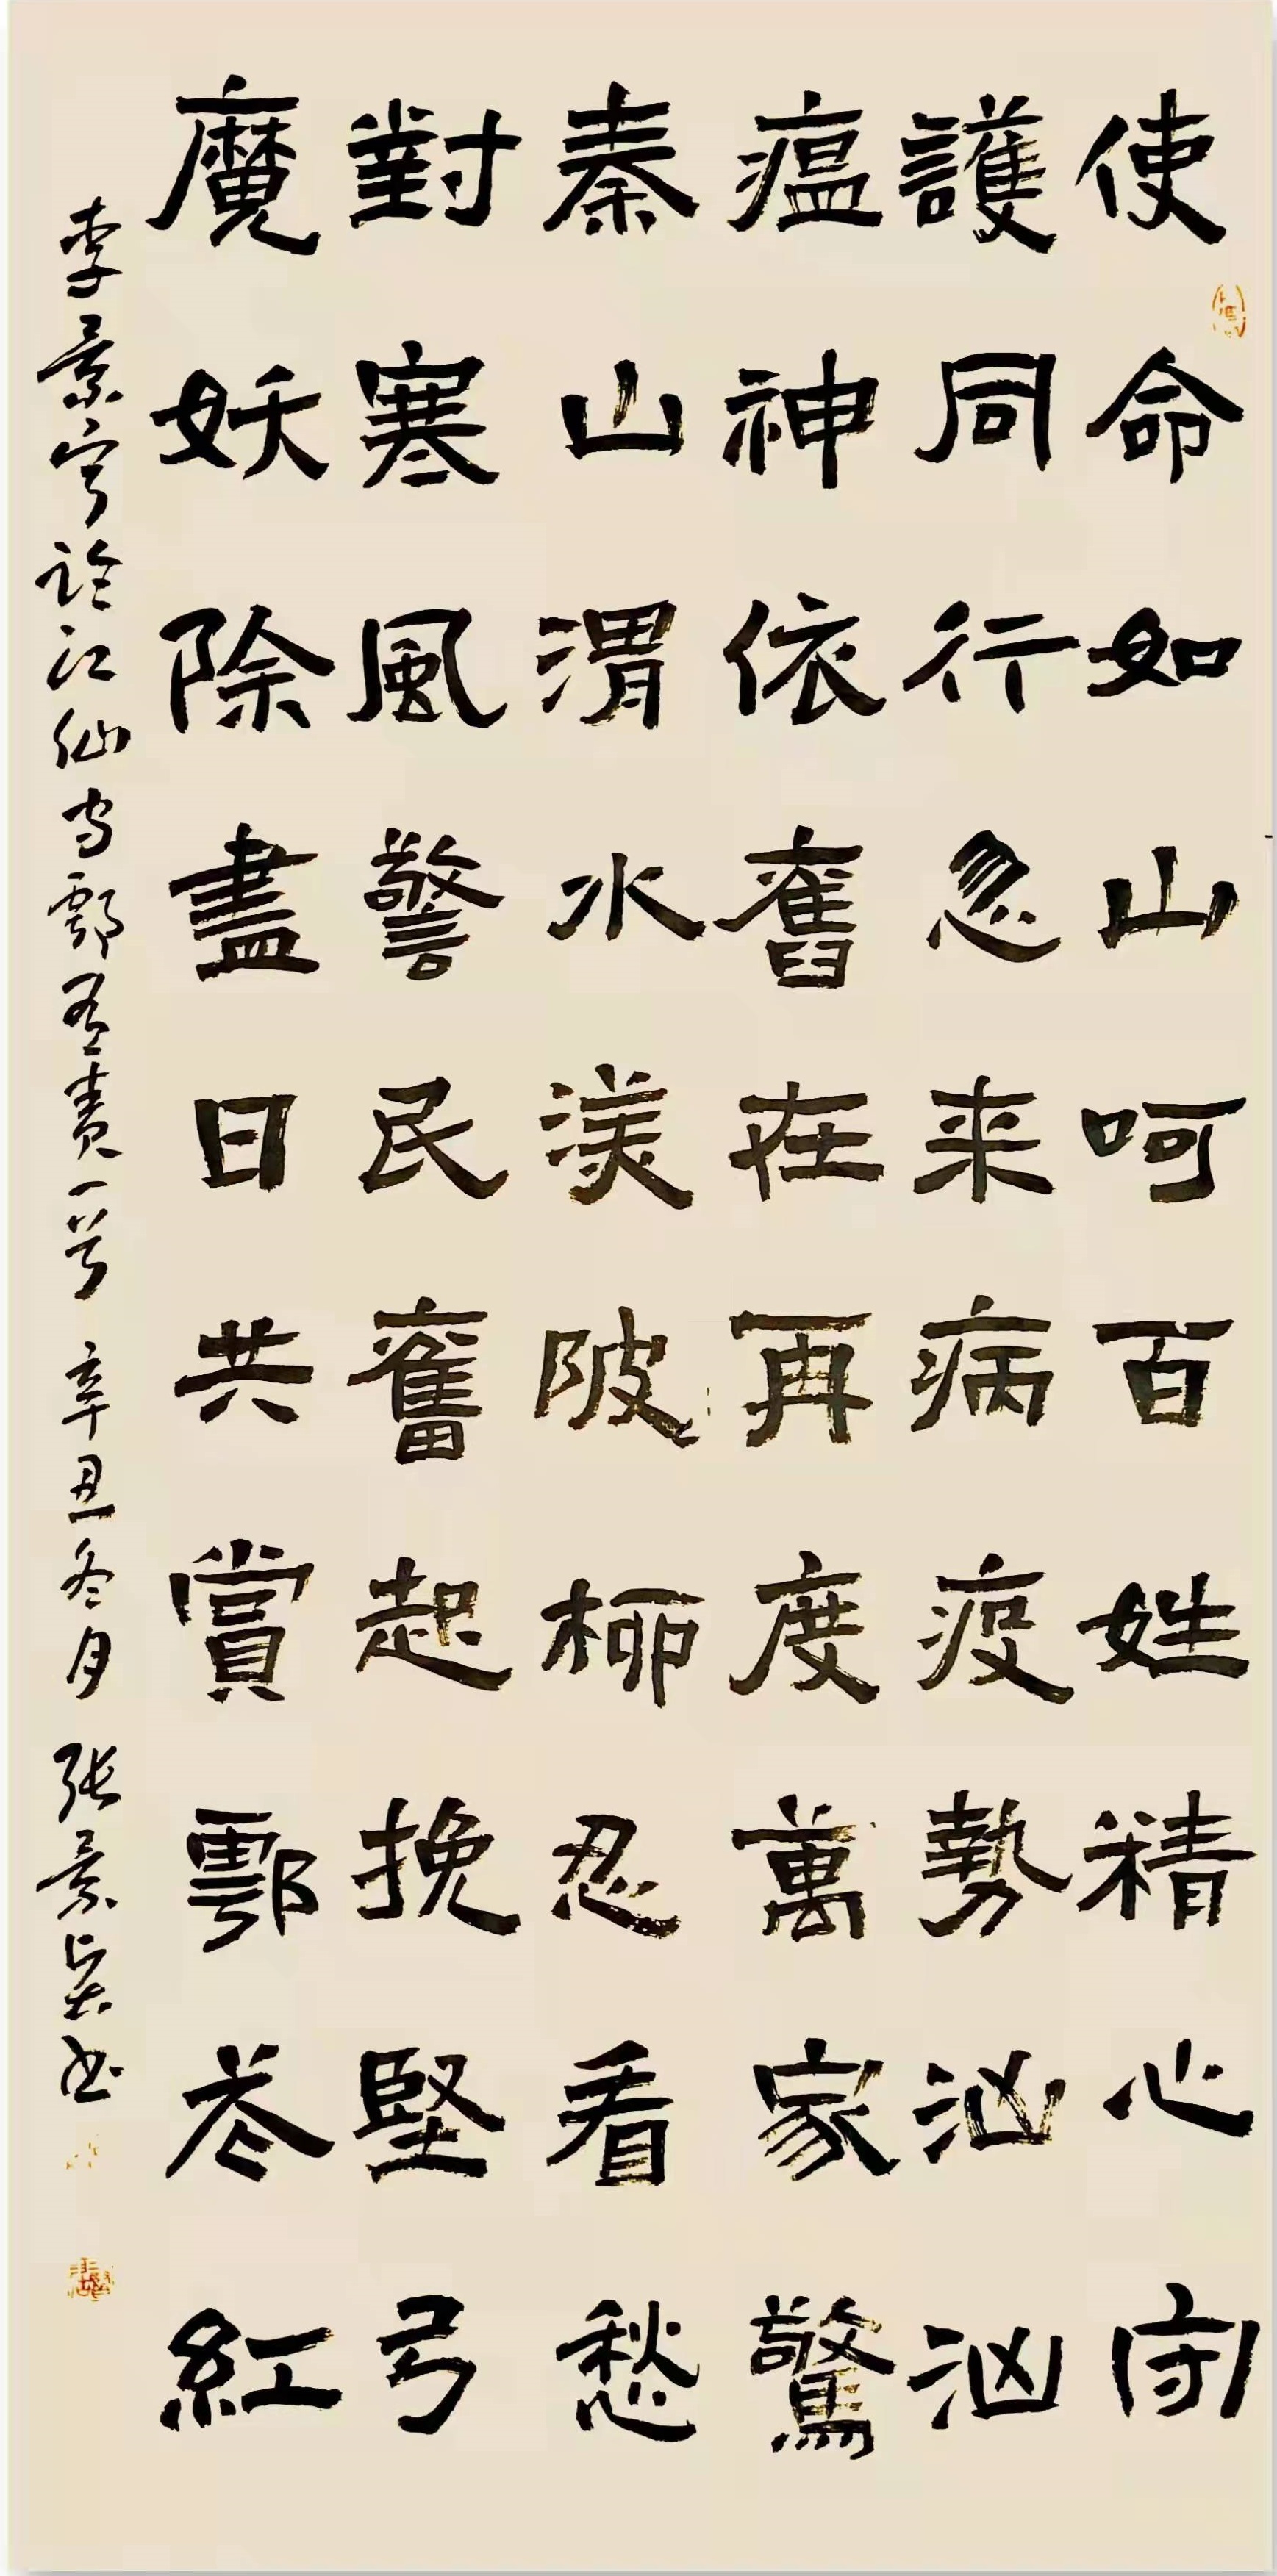 使命如山呵百姓精心守
護同行忽来病疫勢洶洶
瘟神依舊在再度萬家驚
秦山渭水渼陂柳忍看愁
對寒風警民奮起挽堅弓
魔妖除盡日共賞鄠花紅
李景宁临江仙守鄠有责一首 辛丑冬月 张景吴书